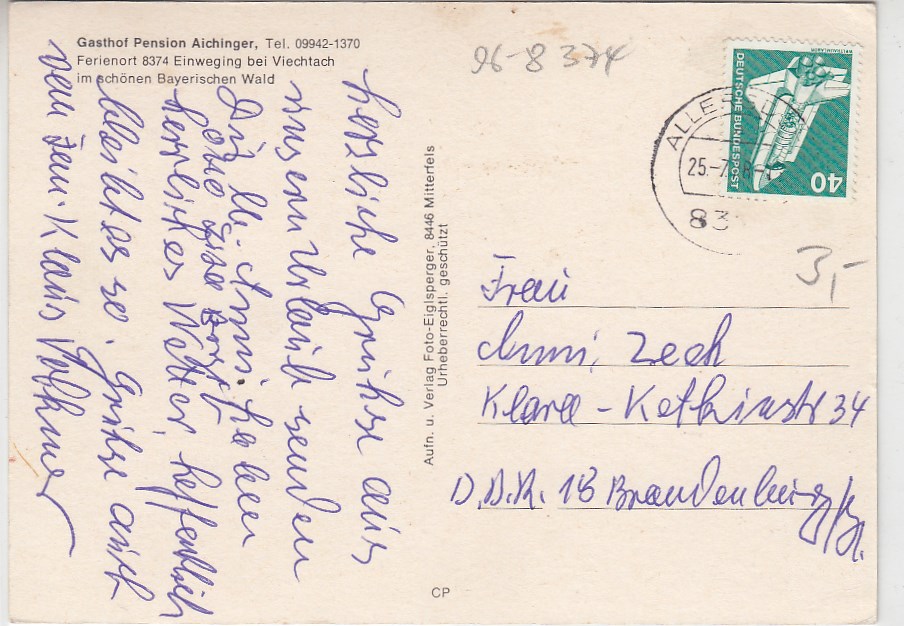 Gasthof Pension Aichinger, Tel. 09942-1370
Ferienort 8374 Einweging bei Viechtach
im schönen Bayerischen Wald
Herzliche Grühse aus
unserm Urlaub senden
Dir lb. Anni haben
herrliches Wetter, hoffentlich
bleibt es so. Grühse auch
von Frau. Klaus Volkmer
Aufn. u. Verlag Foto-Eiglsperger, 8446 Mitterfels
Urheberrechtl. geschützt
CP
96-8374
WELTRAUMLABOR
DEUTSCHE BUNDESPOST
40
25.-7.
83
3,-
Frau
Anni, Zech
Klara-Zetkinstr 34
D.D.R. 18 Brandenburg/H.